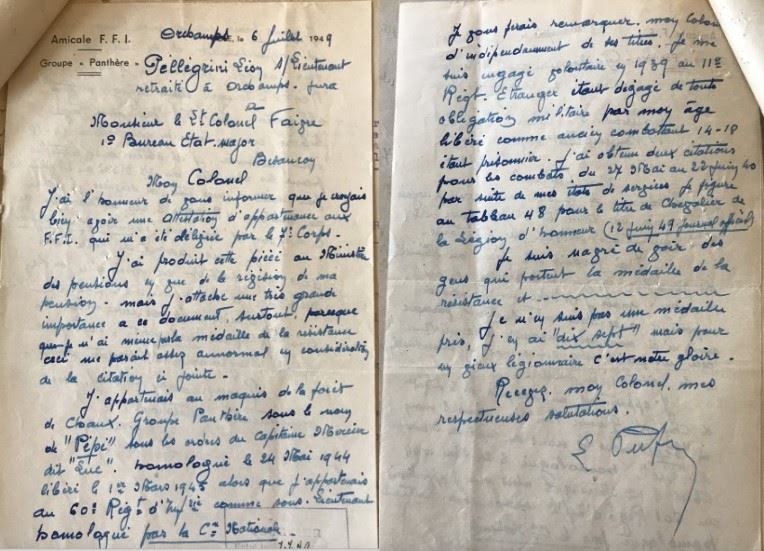 Amicale F. F. I.
Groupe - Panthère -
Orchamps, le 6 Juillet 1949
Pellégrini Léon s/Lieutenant
retraité à Orchamps. Jura
Monsieur le Lt Colonel Faivre
1o Bureau Etat-major
Besançon
Mon Colonel
J'ai l'honneur de vous informer que je croyais
bien avoir une attestation d'appartenance aux
F.F.I. qui m'a été délivrée par le 7e Corps.
J'ai produit cette pièce au Ministre
des pensions en vue de la révision de ma
pension. mais j'attache une très grande
importance a ce document surtout parceque
que je n'ai même pas la médaille de la résistance
ceci me parait assez annormal en considération
de la citation ci jointe.
J'appartenais au maquis de la forêt
de Chaux. Groupe Panthère sous le nom
de "Pépi" sous les ordres du capitaine
dit "Luc". homologué le 24 Mai 1944
libéré le 1er Mars 1945 alors que j'appartenais
au 60e Régt d'Inf/rie comme sous-Lieutenant
homologué par la Con Nationale.
Je vous ferais remarquer. mon Colonel
d'indépendamment de ses titres. Je me
suis engagé volontaire en 1939 au 11e
Régt. Etranger étant dégagé de toute
obligation militaire par mon âge
libéré comme ancien combattant 14-18
étant prisonnier. J'ai obtenu deux citations
pour les combats. du 27 Mai au 22 juin 40
par suite de mes états de services je figure
au tableau 48 pour le titre de Chevalier de
la Légion d'honneur (12 juin 49 journal officiel)
Je suis navré de voir des
gens qui portent la médaille de la
résistance et
Je n'en suis pas une médaille
près, j'en ai "dix sept" mais pour
un vieux légionnaire c'est notre gloire.
Recevez. mon Colonel. mes
respectueuses salutations.